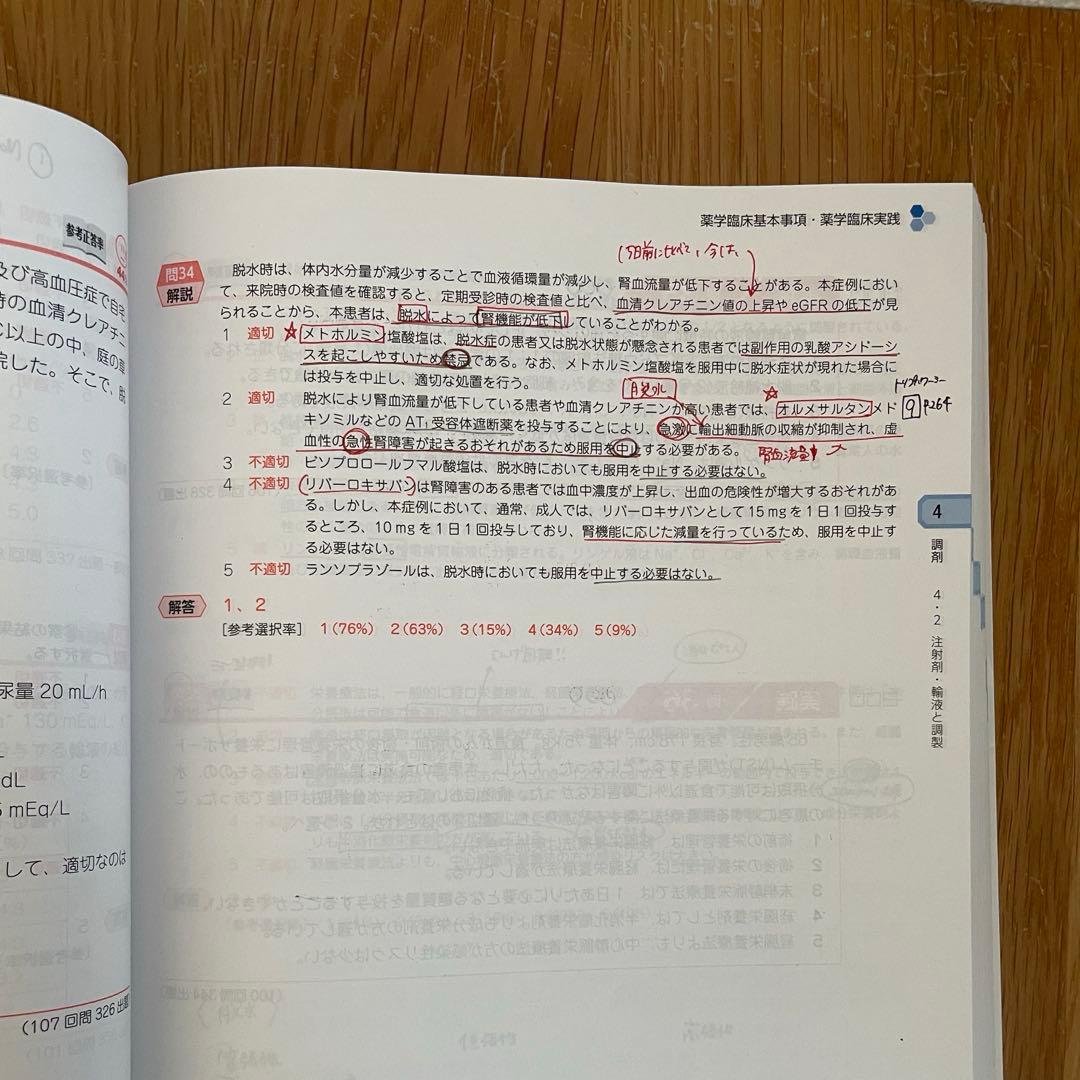 参考正答率
及び高血圧症で自宅
時の血清クレアチニ
℃以上の中、庭の草
院した。そこで、脱
尿量 20 mL/h
dL
5 mEq/L
して、適切なのは
(107 回問 326 出題
薬学臨床基本事項・薬学臨床実践
問34
解説
脱水時は、体内水分量が減少することで血液循環量が減少し、腎血流量が低下することがある。本症例におい
て、来院時の検査値を確認すると、定期受診時の検査値と比べ、血清クレアチニン値の上昇や eGFR の低下が見
られることから、本患者は、脱水によって腎機能が低下していることがわかる。
1 適切 ☆メトホルミン塩酸塩は、脱水症の患者又は脱水状態が懸念される患者では副作用の乳酸アシドーシ
スを起こしやすいため禁忌である。なお、メトホルミン塩酸塩を服用中に脱水症状が現れた場合に
は投与を中止し、適切な処置を行う。
脱水
2 適切 脱水により腎血流量が低下している患者や血清クレアチニンが高い患者では、オルメサルタンメド
9 P264
キソミルなどの AT₁ 受容体遮断薬を投与することにより、急激に輸出細動脈の収縮が抑制され、虚
血性の急性腎障害が起きるおそれがあるため服用を中止する必要がある。
腎血流量
3 不適切 ビソプロロールフマル酸塩は、脱水時においても服用を中止する必要はない。
4 不適切 リバーロキサバンは腎障害のある患者では血中濃度が上昇し、出血の危険性が増大するおそれがあ
る。しかし、本症例において、通常、成人では、リバーロキサバンとして 15 mg を 1 日 1 回投与す
るところ、10 mg を 1 日 1 回投与しており、腎機能に応じた減量を行っているため、服用を中止す
る必要はない。
5 不適切 ランソプラゾールは、脱水時においても服用を中止する必要はない。
解答 1、2
[参考選択率] 1(76%) 2(63%) 3(15%) 4(34%) 5(9%)
4
調剤
4・2 注射剤・輸液と調製